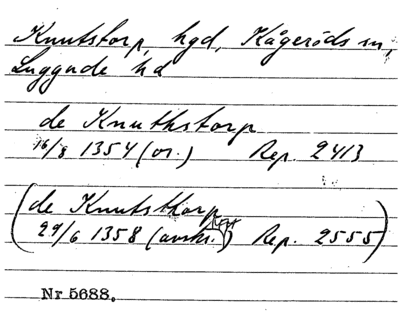 Knutstorp, hgd, Kågeröds sn,
Luggude hd
de Knuthstorp
16/8 1354 (or.) Rep. 2413
(de Knutsthorp
29/6 1358 (avskr.) Rep. 2555)
Nr 5688.